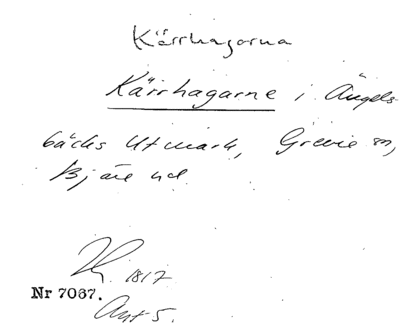 Kärrhagorna
Kärrhagarne i Ängels
bäcks Utmark, Grevie sn,
Bjäre hd
1817
Nr 7067.
Akt 5.